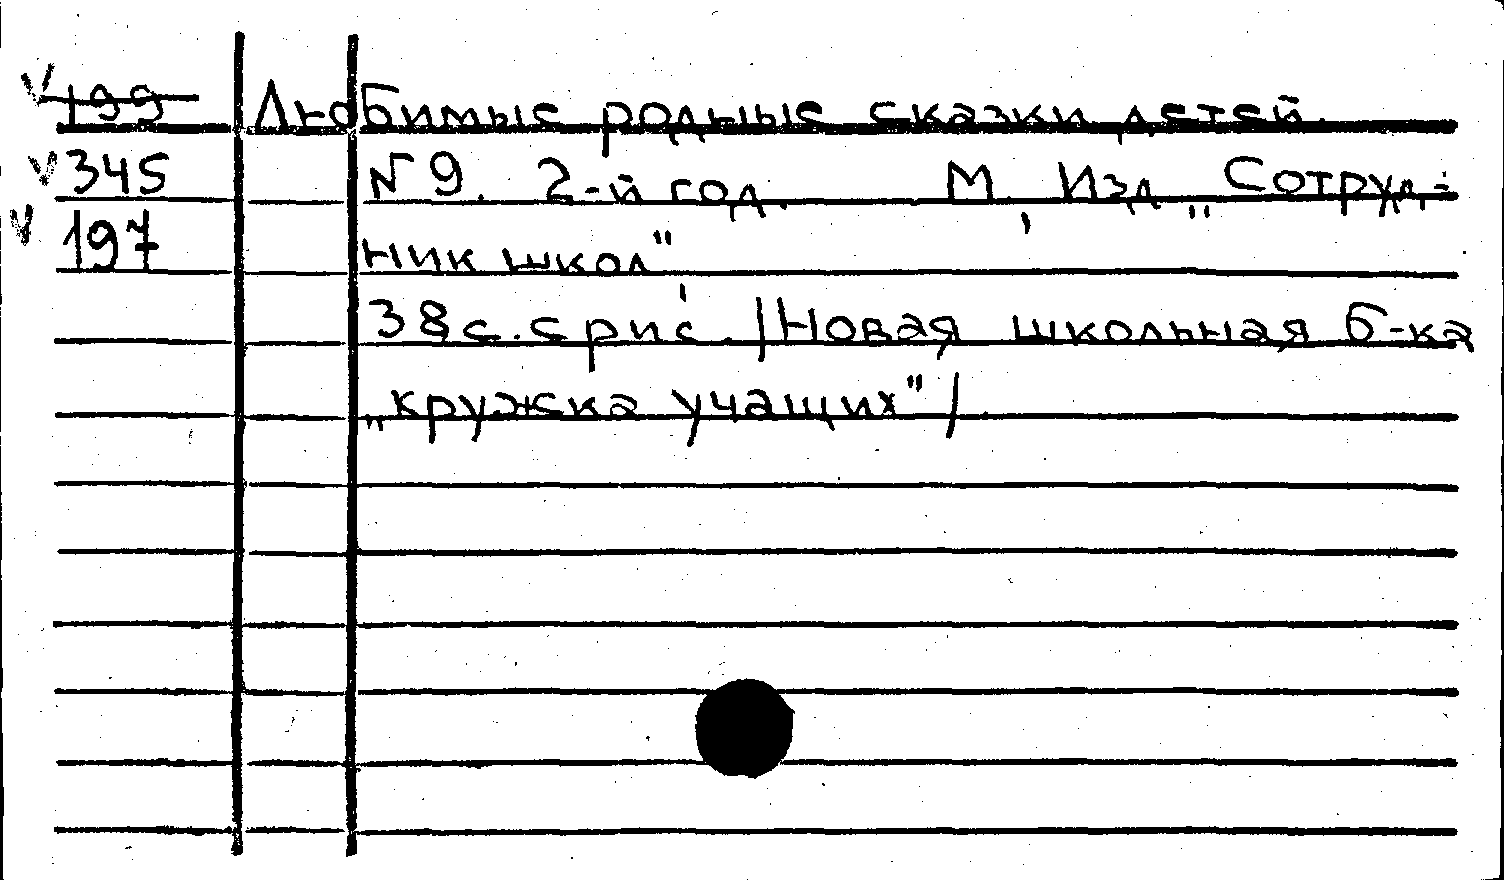 V 199 Любимые родные сказки детей.
V 345 N 9. 2-й год. М, Изд „Сотруд-
V 197 ник школ"
38 с. с рис. /Новая школьная б-ка
„кружка учащих"/